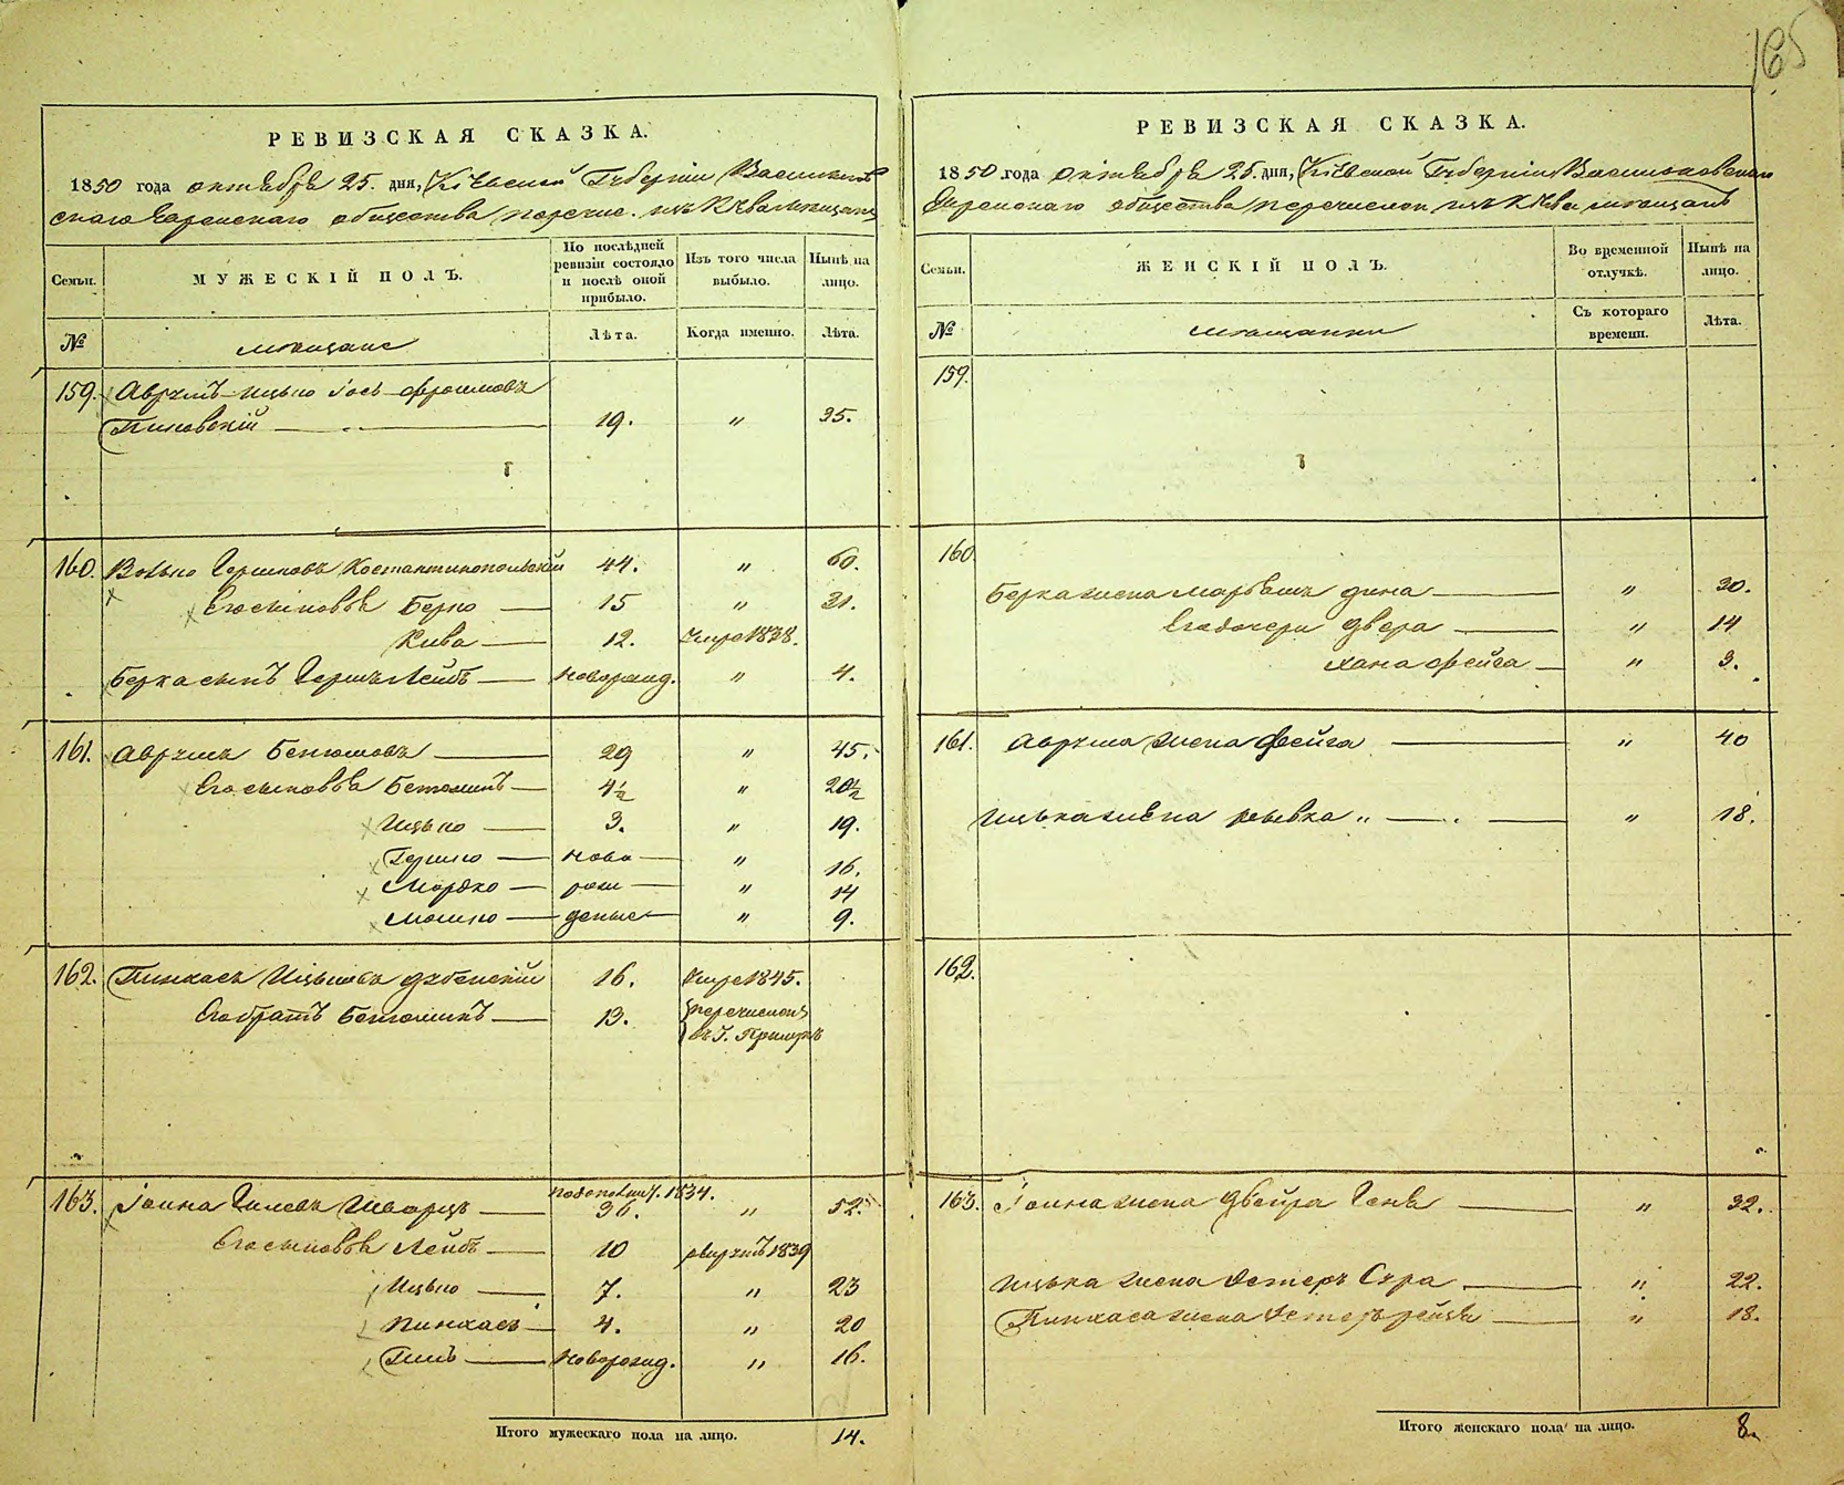 165
РЕВИЗСКАЯ СКАЗКА.
1850 года октября 25. дня, Кіевской Губерніи Васильков
скаго Еврейскаго общества перечис. изъ Кіева мѣщане
Семьи.
МУЖЕСКІЙ ПОЛЪ.
По послѣдней ревизіи состояло и послѣ оной прибыло.
Изъ того числа выбыло.
Нынѣ на лицо.
№
мѣщане
Лѣта.
Когда именно.
Лѣта.
159. Аврумъ-Ицько Іось-Фроимовъ
Пиковскій 19. " 35.
160. Волько Гершковъ Костантинопольскій 44. " 60.
Его сыновья Берко 15 " 31.
Кива 12. умре 1838.
Берка сынъ Гершъ Лейбъ новорожд. " 4.
161. Аврумъ Бенюмовъ 29 " 45.
Его сыновья Бенюминъ 4½ " 20½
Ицько 3. " 19.
Гершко ново " 16.
Мордко рож " 14
Мошко деные " 9.
162. Пинхасъ Ицьковъ Дубенскій 16. умре 1845.
Его братъ Бенюминъ 13. перечисленъ
въ г.
163. Іойна Шварцъ пополнит. 1834. 36. " 52.
Его сыновья Лейбъ 10 рекрутъ 1839
Ицько 7. " 23
Пинхасъ 4. " 20
новорожд. " 16.
Итого мужескаго пола на лицо. 14.
РЕВИЗСКАЯ СКАЗКА.
1850 года октября 25. дня, Кіевской Губерніи Васильковскаго
Еврейскаго общества перечислен. изъ Кіева мѣщанъ
Семьи.
ЖЕНСКІЙ ПОЛЪ.
Во временной отлучкѣ.
Нынѣ на лицо.
№
мѣщанки
Съ котораго времени.
Лѣта.
159.
160.
Берка жена Марьямъ Дина " 30.
Его дочери Двера " 14
Хана Фейга " 3.
161. Аврума жена Фейга " 40
Ицька жена Рывка " 18.
162.
163. Іойна жена Двейра Геня " 32.
Ицька жена Эстеръ Сура " 22.
Пинхаса жена Эстеръ Рейзя " 18.
Итого женскаго пола на лицо. 8.